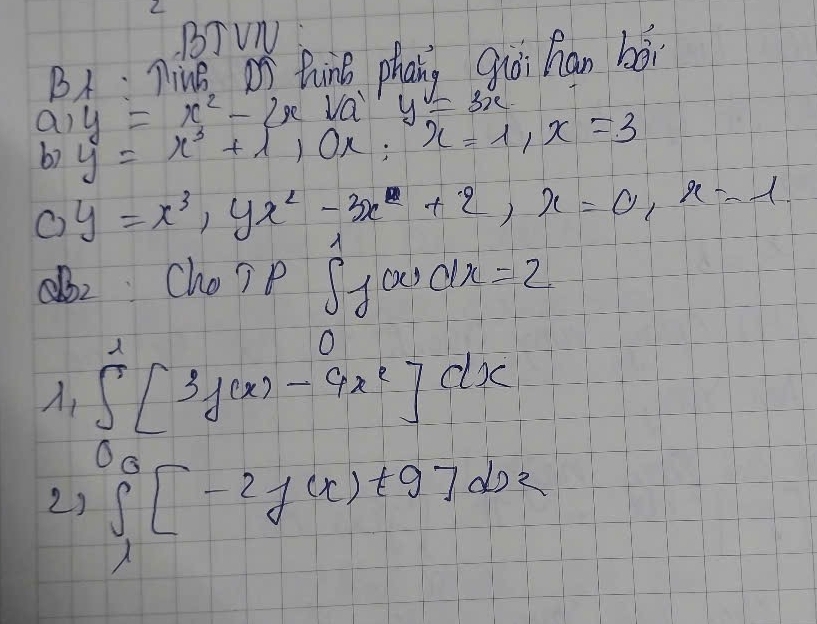 BTVN :
B1 : Tính DT hình phẳng giới hạn bởi
a, y = x² - 2x và y = 3x
b) y = x³ + 1, Ox ; x = 1, x = 3
c) y = x³, yx² - 3x + 2, x = 0, x = 1
B2 : Cho TP ∫₀¹ f(x) dx = 2
1, ∫₀¹ [3f(x) - 4x²] dx
2) ∫₁⁰ [-2f(x) + 9] dx